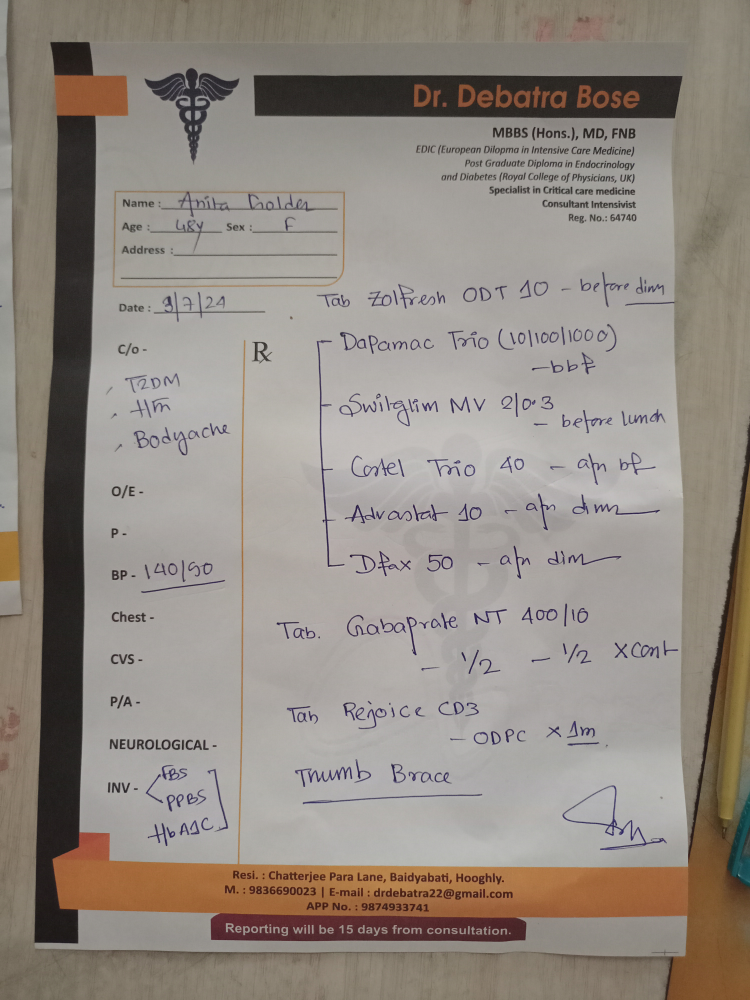 Dr. Debatra Bose
MBBS (Hons.), MD, FNB
EDIC (European Dilopma in Intensive Care Medicine)
Post Graduate Diploma in Endocrinology
and Diabetes (Royal College of Physicians, UK)
Specialist in Critical care medicine
Consultant Intensivist
Reg. No.: 64740
Name : Anita Golder
Age : 48y Sex : F
Address :
Date : 9/7/24
C/o -
T2DM
HTN
Bodyache
O/E -
P -
BP - 140/90
Chest -
CVS -
P/A -
NEUROLOGICAL -
INV - FBS
PPBS
HbA1C
Rx
Tab Zolfresh ODT 10 - before dinn
Dapamac Trio (10/100/1000)
- bbf
MV 2/0.3
- before lunch
Trio 40 - a/n bf
10 - a/n dinn
50 - a/n dinn
Tab. Gabaprate NT 400/10
- 1/2 - 1/2 X cont
Tab Rejoice CD3
- ODPC X 1m
Thumb Brace
Resi. : Chatterjee Para Lane, Baidyabati, Hooghly.
M. : 9836690023 | E-mail : drdebatra22@gmail.com
APP No. : 9874933741
Reporting will be 15 days from consultation.